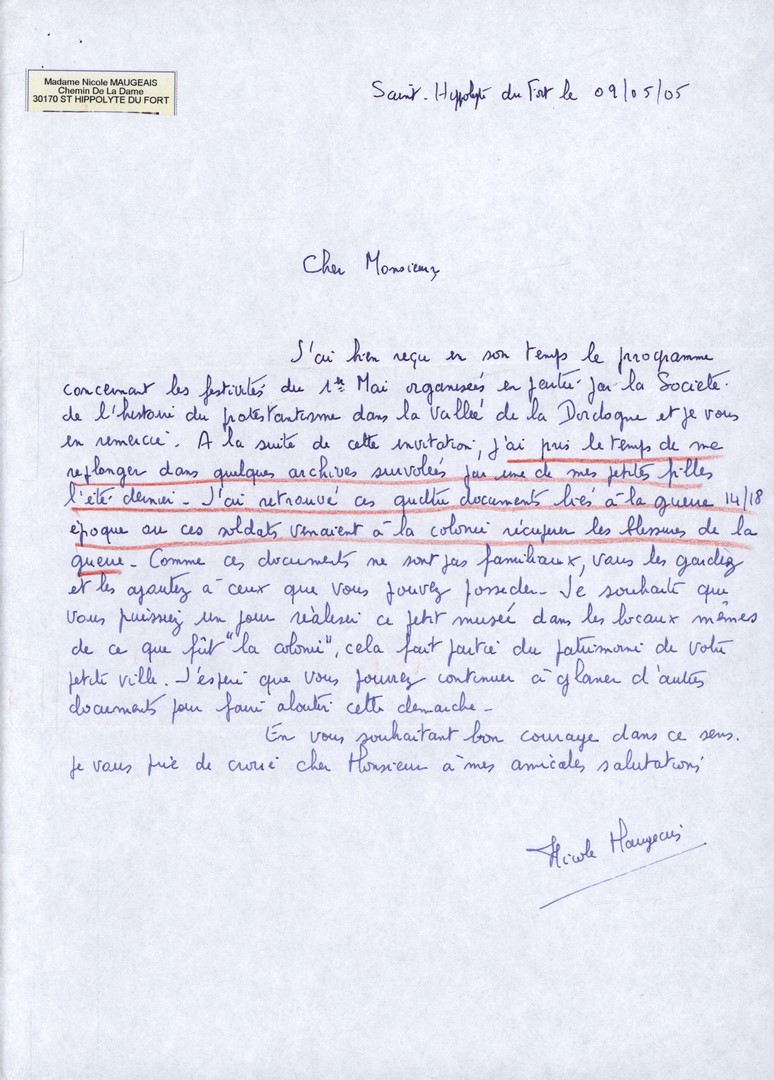 Madame Nicole MAUGEAIS
Chemin De La Dame
30170 ST HIPPOLYTE DU FORT
Saint-Hippolyte du Fort le 09/05/05
Cher Monsieur,
J'ai bien reçu en son temps le programme
concernant les festivités du 1er Mai organisées en partie par la Société
de l'histoire du protestantisme dans la Vallée de la Dordogne et je vous
en remercie. A la suite de cette invitation, j'ai pris le temps de me
replonger dans quelques archives survolées par une de mes petites filles
l'été dernier - J'ai retrouvé ces quatre documents liés à la guerre 14/18
époque ou ces soldats venaient à la colonie récupérer les blessures de la
guerre - Comme ces documents ne sont pas familiaux, vous les gardez
et les ajoutez à ceux que vous pouvez posseder - Je souhaite que
vous puissiez un jour réaliser ce petit musée dans les locaux mêmes
de ce que fût "la colonie", cela fait partie du patrimoine de votre
petite ville. J'espère que vous pourrez continuer à glaner d'autres
documents pour faire aboutir cette demarche -
En vous souhaitant bon courage dans ce sens.
Je vous prie de croire cher Monsieur à mes amicales salutations
Nicole Maugeais